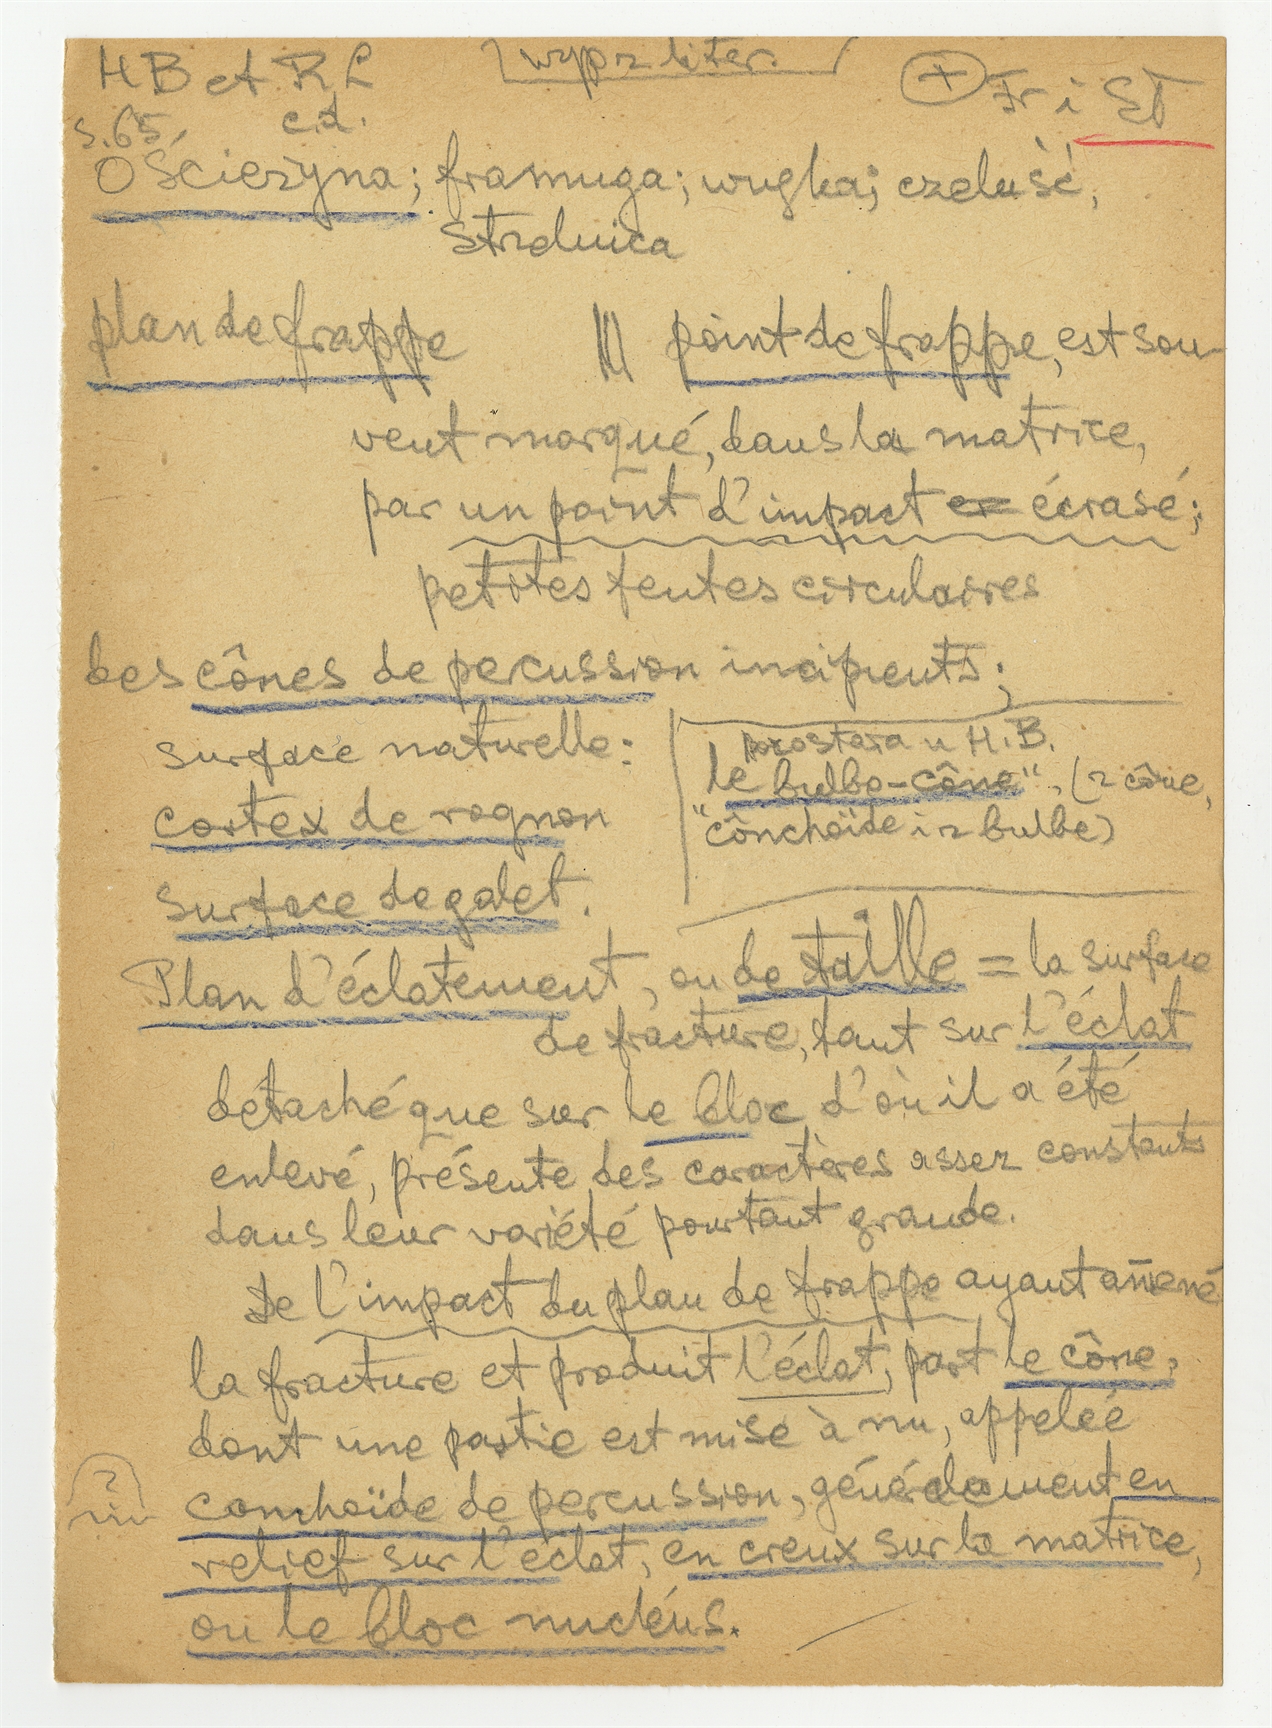 HB et RL
wyp z liter.
+ Fr i ST
s. 65, c.d.
Ościeżyna; framuga; wnęka; czeluść,
Strzelnica
plan de frappe
point de frappe, est sou-
vent marqué, dans la matrice,
par un point d'impact écrasé;
petites fentes circulaires
des cônes de percussion incipients;
surface naturelle:
cortex de rognon
surface de galet.
pozostaja u H.B.
le bulbo-cône", (z cône,
"cônchoïde i z bulbe)
Plan d'éclatement, ou de taille = la surface
de fracture, tant sur l'éclat
détaché que sur le bloc d'où il a été
enlevé, présente des caractères assez constants
dans leur variété pourtant grande.
De l'impact du plan de frappe ayant amené
la fracture et produit l'éclat, part le cône,
dont une partie est mise à nu, appelée
conchoïde de percussion, généralement en
relief sur l'éclat, en creux sur la matrice,
ou le bloc nucléus.